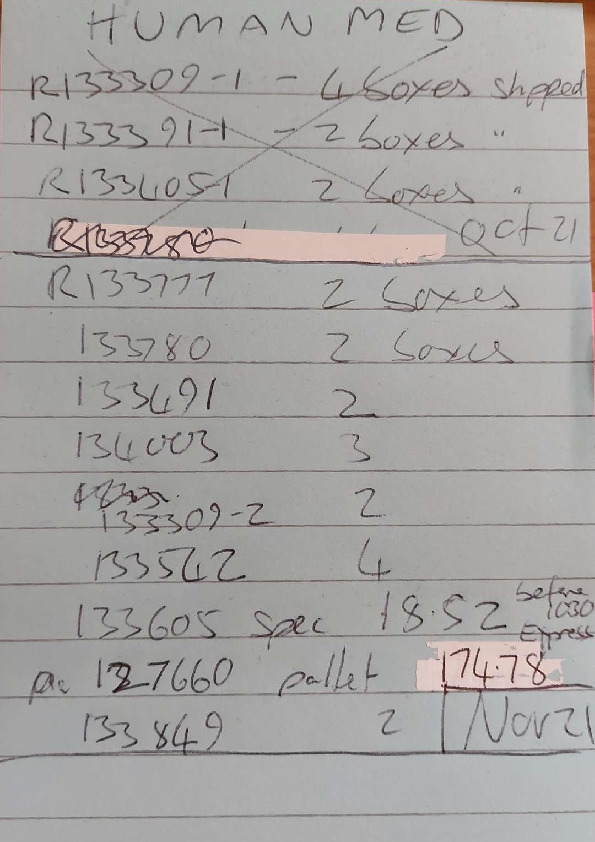 HUMAN MED
R133309-1 - 4 boxes shipped
R133391-1 - 2 boxes "
R133405-1 2 boxes "
Oct 21
R133777 2 boxes
133780 2 boxes
133491 2
134003 3
133309-2 2
133542 4
133605 spec 18.52 before 1030 Express
127660 pallet 174.78
133849 2 Nov 21